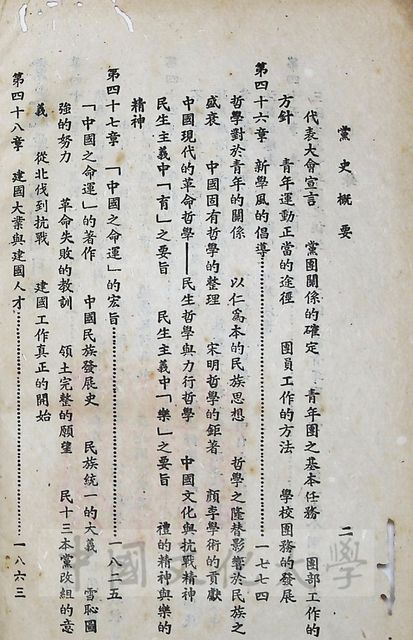 黨史概要 二
代表大會宣言 黨團關係的確定 青年團之基本任務 團部工作的
方針 青年運動正當的途徑 團員工作的方法 學校團務的發展
第四十六章 新學風的倡導……一七七四
哲學對於青年的關係 以仁爲本的民族思想 哲學之隆替影響於民族之
盛衰 中國固有哲學的整理 宋明哲學的鉅著 顏李學術的貢獻
中國現代的革命哲學——民生哲學與力行哲學 中國文化與抗戰精神
民生主義中「育」之要旨 民生主義中「樂」之要旨 禮的精神與樂的
精神
第四十七章 「中國之命運」的宏旨……一八二五
「中國之命運」的著作 中國民族發展史 民族統一的大義 雪恥圖
強的努力 革命失敗的教訓 領土完整的願望 民十三本黨改組的意
義 從北伐到抗戰 建國工作真正的開始
第四十八章 建國大業與建國人才……一八六三